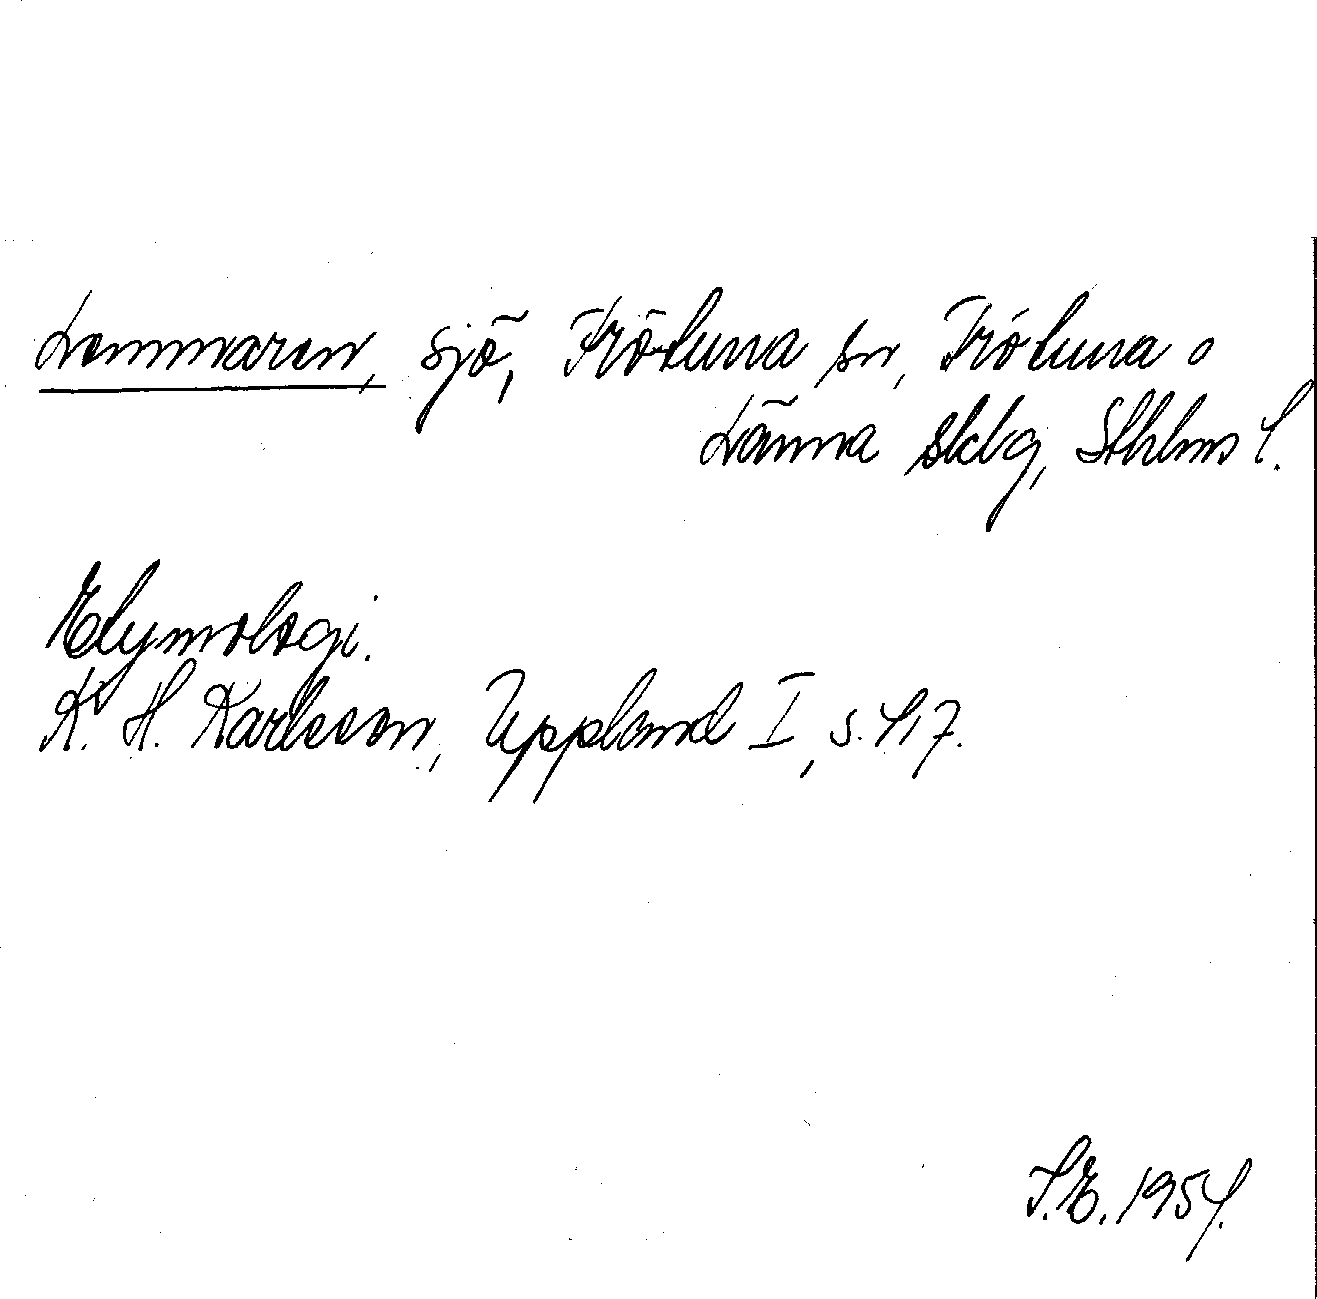 Lommaren, sjö, Frötuna sn, Frötuna o
Länna skslg, Sthlms l.
Etymologi.
K. H. Karlsson, Uppland I, s. 417.
S. E. 1954.